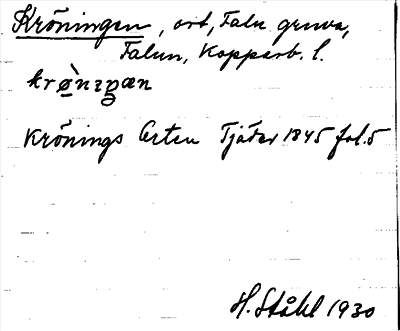 Kröningen, ort, Falu gruva,
Falun, Kopparb. l.
Krönings Orten Tjäder 1845 fol. 5
H. Ståhl 1930